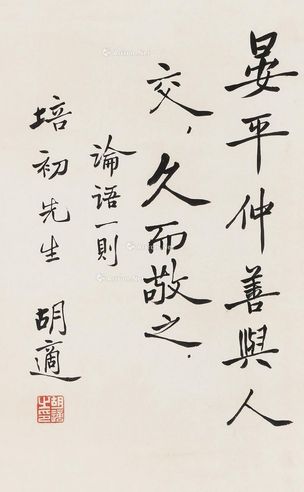 晏平仲善與人
交，久而敬之．
論語一則
培初先生
胡適
胡適之印